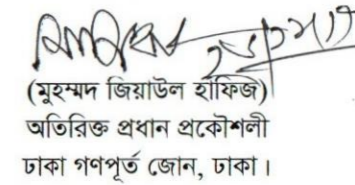 (মুহম্মদ জিয়াউল হাফিজ)
অতিরিক্ত প্রধান প্রকৌশলী
ঢাকা গণপূর্ত জোন, ঢাকা।